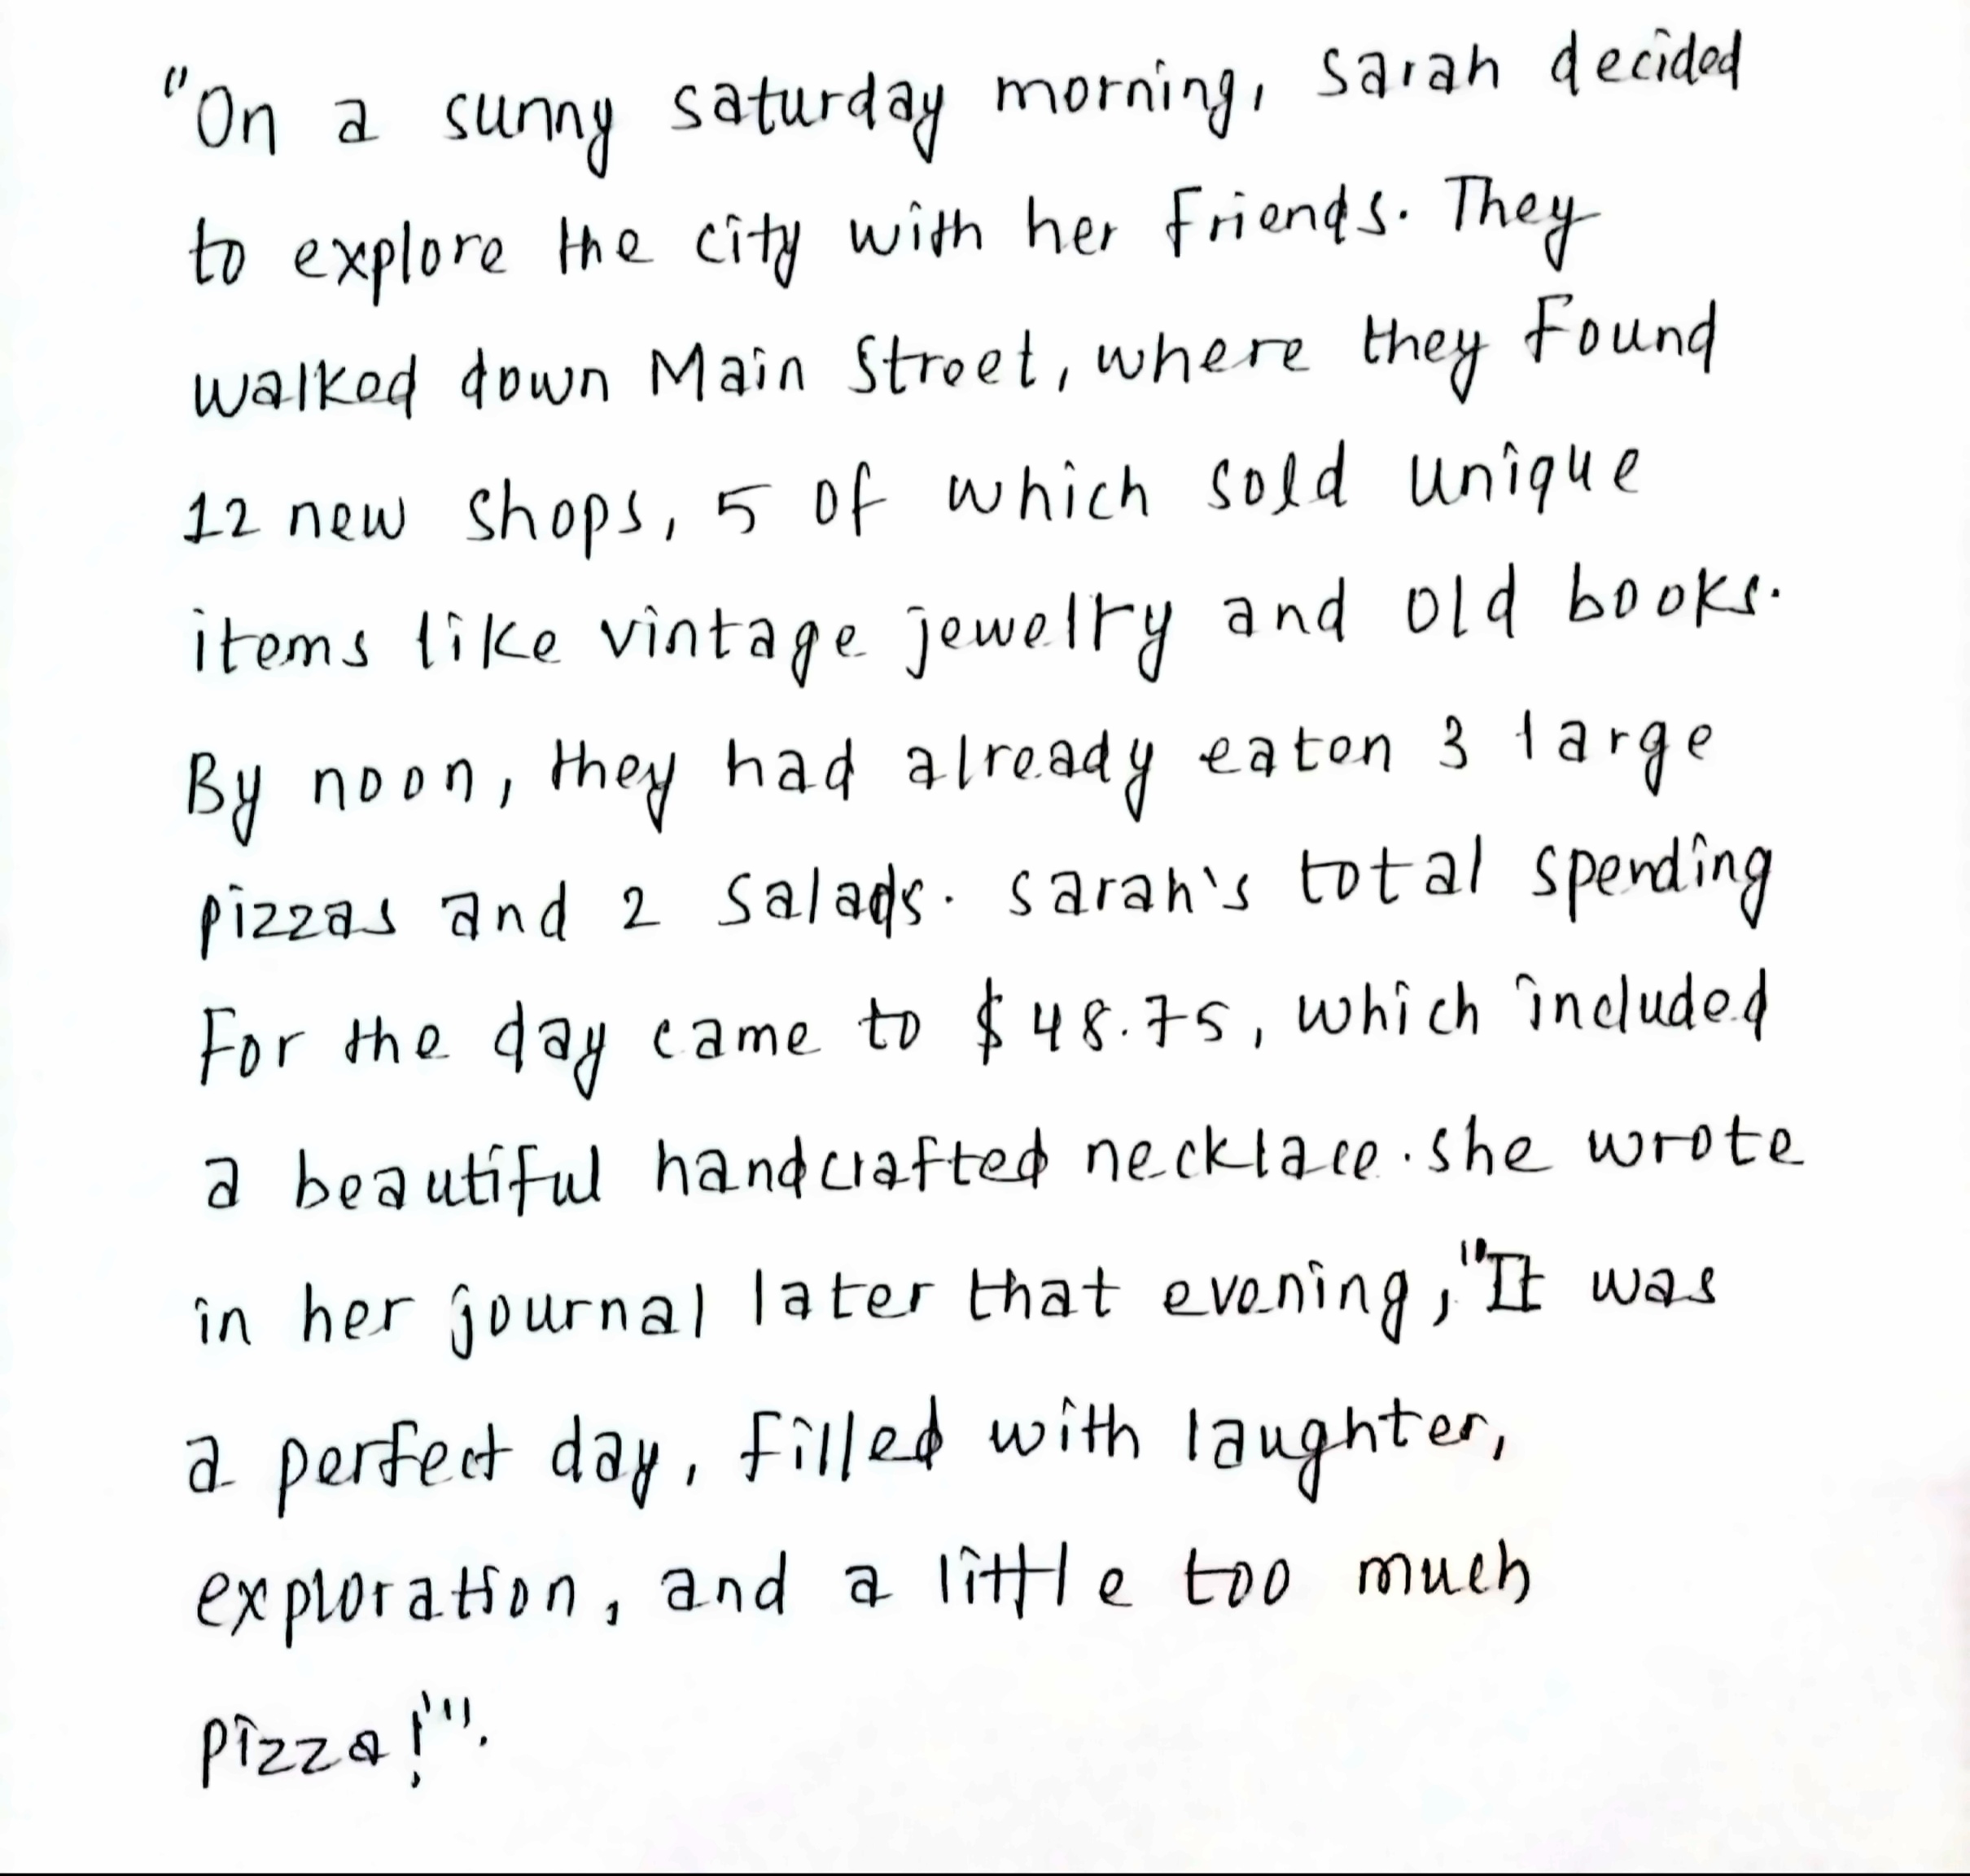 "On a sunny saturday morning, Sarah decided
to explore the city with her friends. They
walked down Main Street, where they found
12 new shops, 5 of which sold unique
items like vintage jewelry and old books.
By noon, they had already eaten 3 large
pizzas and 2 salads. Sarah's total spending
For the day came to $48.75, which included
a beautiful handcrafted necklace. she wrote
in her journal later that evening, "It was
a perfect day, filled with laughter,
exploration, and a little too much
pizza!'".